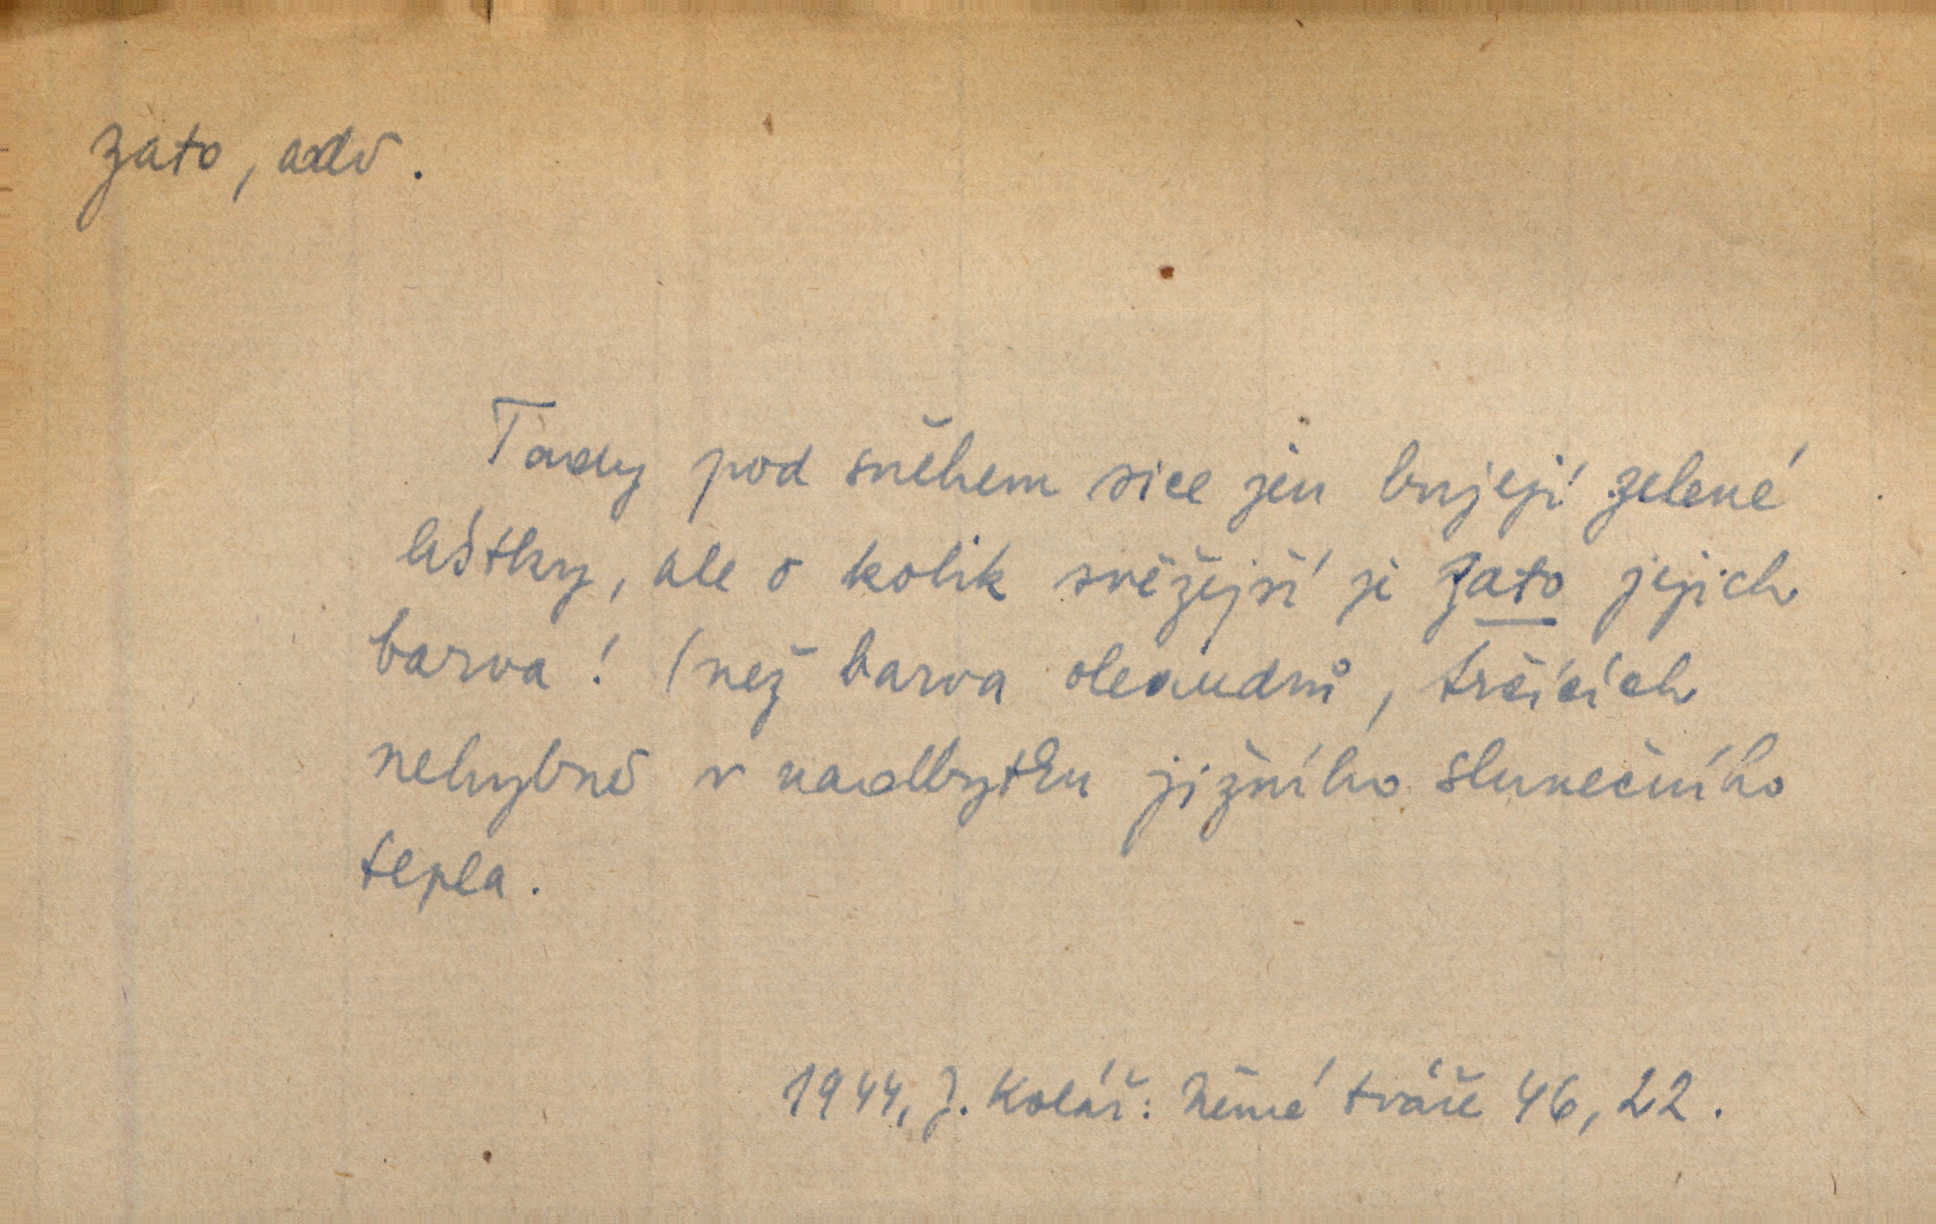 zato, adv.
Tady pod sněhem sice jen bujejí zelené
lístky, ale o kolik svěžejší je zato jejich
barva! (než barva oleandrů, trčících
nehybně v nadbytku jižního slunečního
tepla.
1944, J. Kolář: Němé tváře 46, 22.